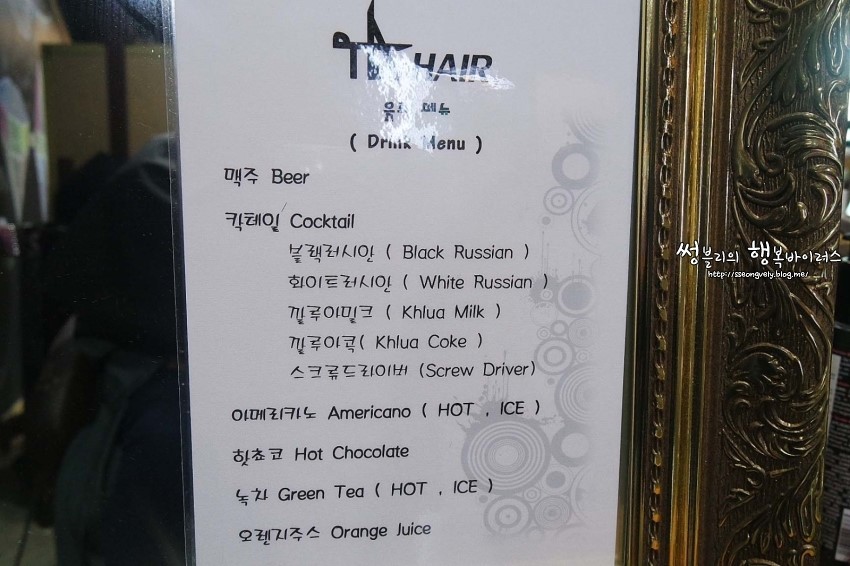 HAIR
메뉴
( Drink Menu )
맥주 Beer
칵테일 Cocktail
블랙러시안 ( Black Russian )
화이트러시안 ( White Russian )
깔루아밀크 ( Khlua Milk )
깔루아콕( Khlua Coke )
스크류드라이버 (Screw Driver)
아메리카노 Americano ( HOT , ICE )
핫쵸코 Hot Chocolate
녹차 Green Tea ( HOT , ICE )
오렌지주스 Orange Juice
썽블리의 행복바이러스
http://sseongvely.blog.me/